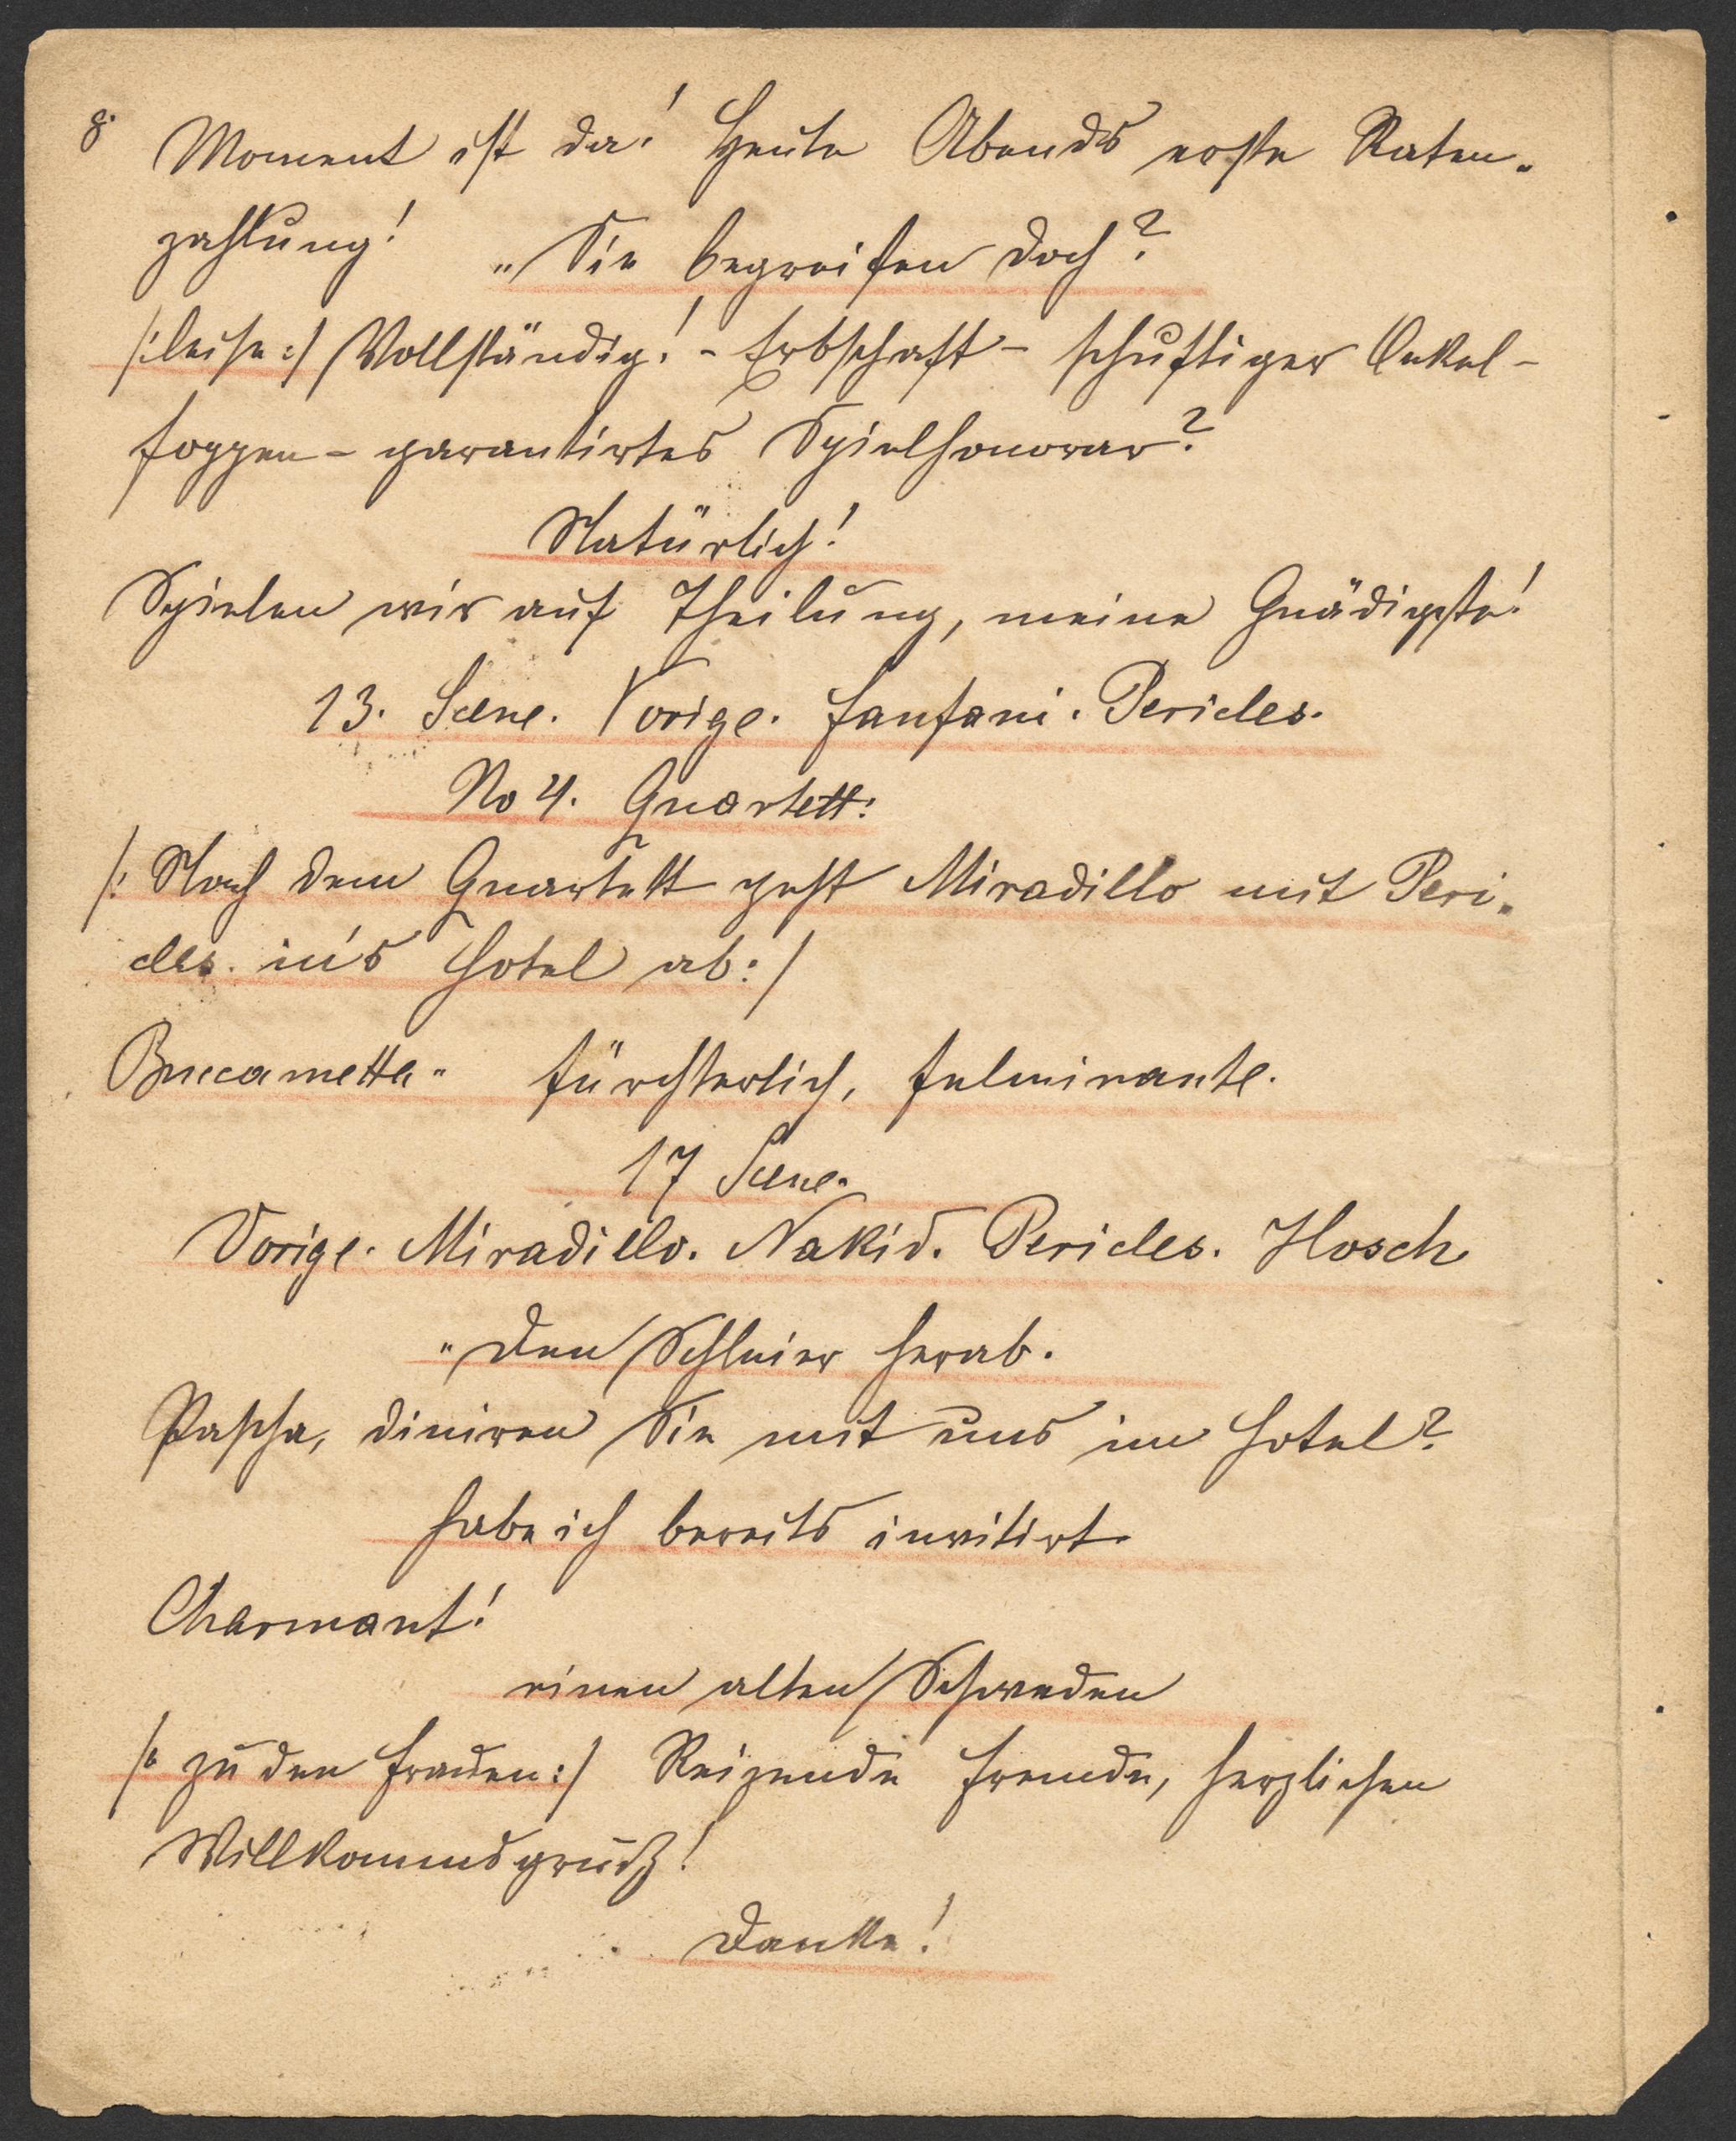 8. Moment ist da! Heute Abends erste Raten-
zahlung! „Sie begreifen doch?
/: leise :/ Vollständig! - Erbschaft - schuftiger Onkel -
foppen - garantirtes Spielhonorar?
Natürlich!
Spielen wir auf Theilung, meine Gnädigste!
13. Scene. Vorige. Fanfani. Pericles.
No 4. Quartett:
/: Nach dem Quartett geht Miradillo mit Peri-
cles. in's Hotel ab :/
Buccametta „ fürchterlich, fulminante.
17 Scene.
Vorige. Miradillo. Nakid. Pericles. Hosch
„Den Schleier herab.
Pascha, diniren Sie mit uns im Hotel?
Habe ich bereits invitirt
Charmant!
einen alten Schweden
/: zu den Frauen :/ Reizende Fremde, herzlichen
Willkommsgruß!
Danke!